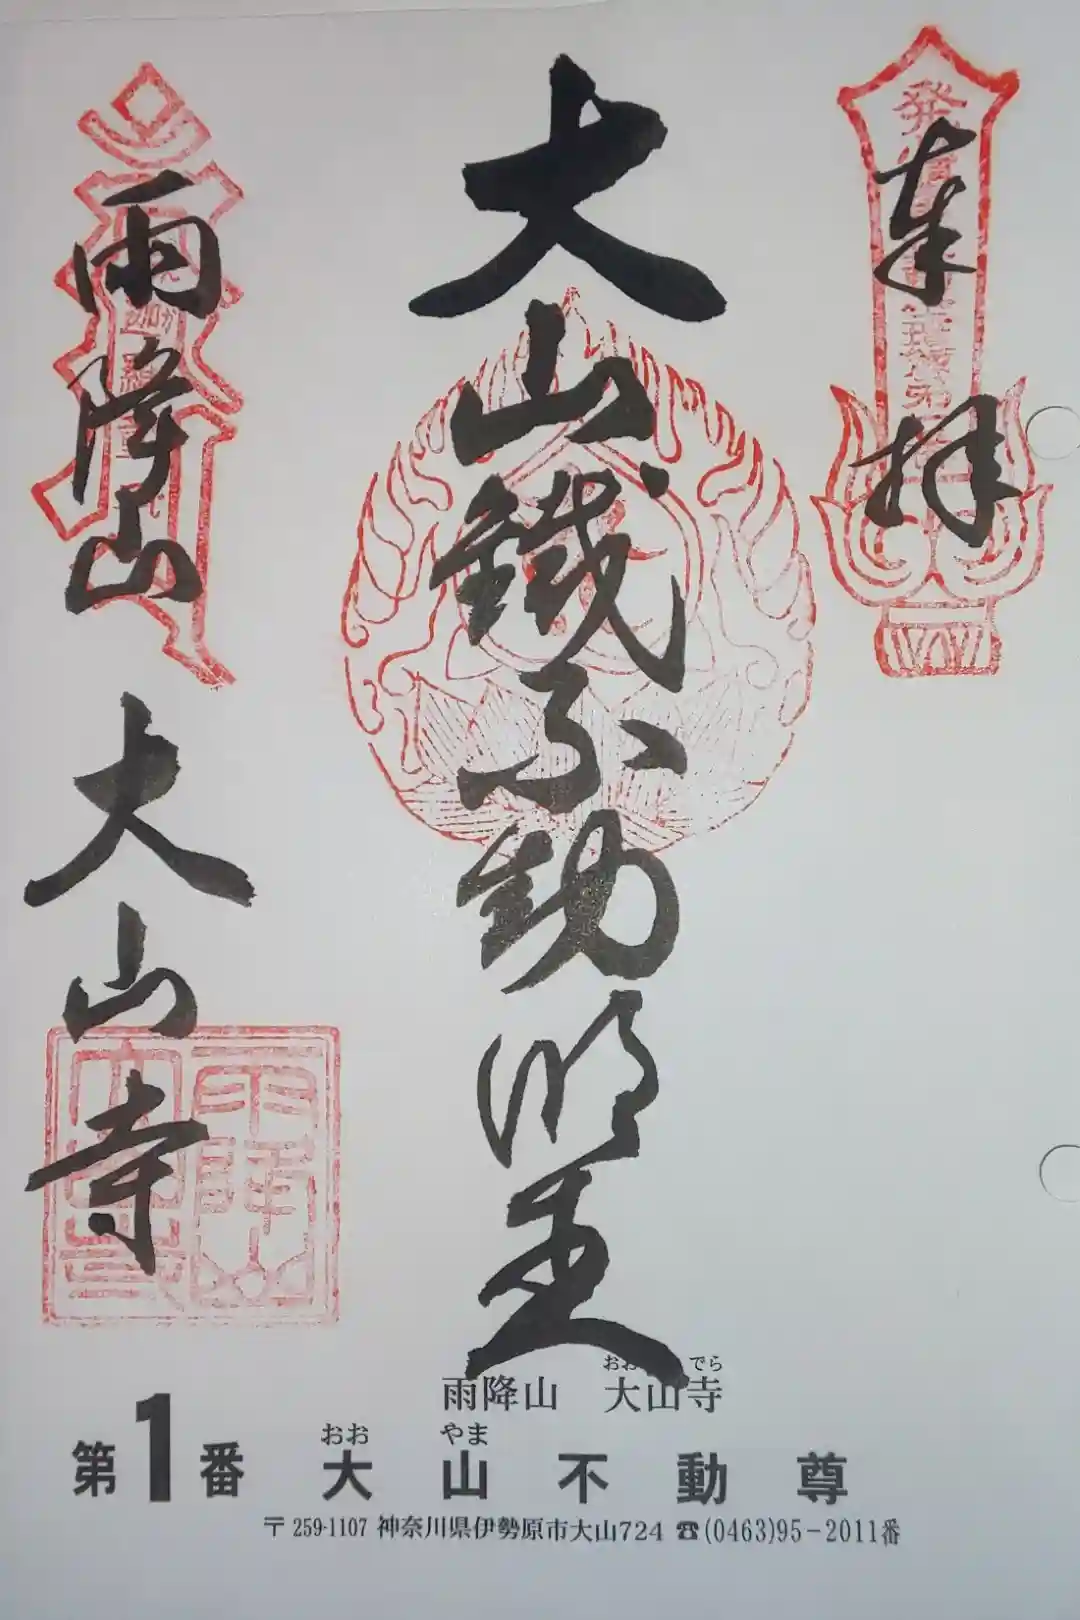 奉拝
大山鐵不動明王
雨降山 大山寺
雨降山 大山寺
おお でら
第1番 大山不動尊
おお やま
〒259-1107 神奈川県伊勢原市大山724 ☎(0463)95-2011番